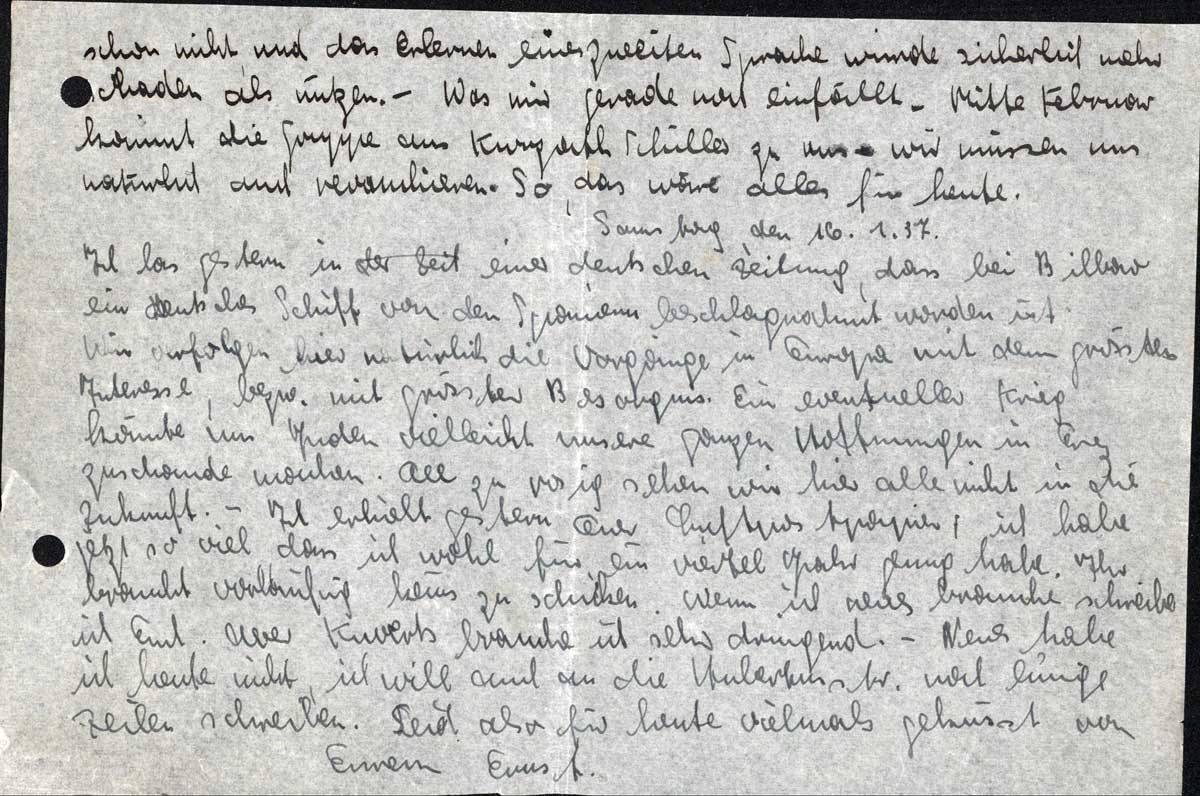 schon nicht und das Erlernen eines zweiten Sprache würde sicherlich mehr
schaden als nützen. – Was mir gerade noch einfällt – Mitte Februar
kommt die Gruppe aus Schüller zu uns – wir müssen uns
natürlich auch revanchieren. So, das wäre alles für heute.
Samstag den 16. 1. 37.
Ich las gestern in der Zeit einer deutschen Zeitung, dass bei Bilbao
ein deutsches Schiff von den Spaniern beschlagnahmt worden ist.
Wir verfolgen hier natürlich die Vorgänge in Europa mit dem grössten
Interesse, bezw. mit grösster Besorgnis. Ein eventueller Krieg
könnte uns Juden vielleicht unsere ganzen Hoffnungen in Erez
zuschande machen. All zu rosig sehen wir hier alle nicht in die
Zukunft. – Ich erhielt gestern Euer Luftpostpapier, ich habe
jetzt so viel dass ich wohl für ein viertel Jahr genug habe. Ihr
braucht vorläufig keins zu schicken. Wenn ich neues brauche schreibe
ich Euch. Aber Kuverts brauche ich sehr dringend. – Neues habe
ich heute nicht, ich will auch an die str. noch einige
Zeilen schreiben. Seid also für heute vielmals geküsst von
Eurem Ernst.